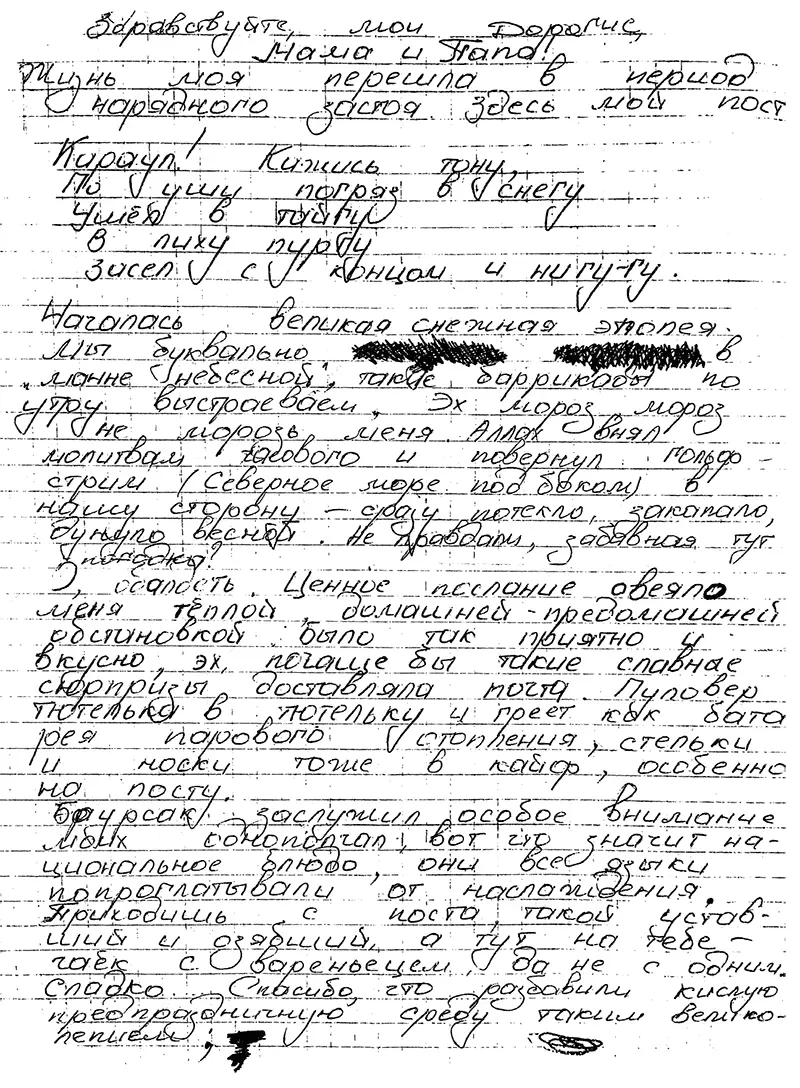 Здравствуйте, мои Дорогие,
Мама и Папа!
Жизнь моя перешла в период
нарядного застоя. Здесь мой пост
Караул! Кажись тону,
По ушу погряз в снегу
Ушёл в тайгу
В лиху пургу
Засел с концом и ни гу-гу.
Началась великая снежная эпопея.
Мы буквально в
"манне небесной", такие баррикады по
утру выстраеваем. Эх мороз, мороз
не морозь меня. Аллах внял
молитвам часового и повернул гольф-
стрим (Северное море под боком) в
нашу сторону - сразу потекло, закапало,
дунуло весной. Не правдали, забавная тут
погодка?
О, сладость. Ценное послание овеяло
меня тёплой, домашней-предомашней
обстановкой. было так приятно и
вкусно, эх, почаще бы такие славные
сюрпризы доставляла почта. Пуловер
тютелька в тютельку и греет как бата
рея парового отопления, стельки
и носки тоже в кайф, особенно
на посту.
Баурсак заслужил особое внимание
моих однополчан, вот что значит на-
циональное блюдо, они все языки
попроглатывали от наслаждения.
Приходишь с поста, такой устав-
ший и озябший, а тут на тебе -
чаёк с вареньецем, да не с одним.
Сладко. Спасибо, что разбавили кислую
предпраздничную среду таким велико-
лепием;